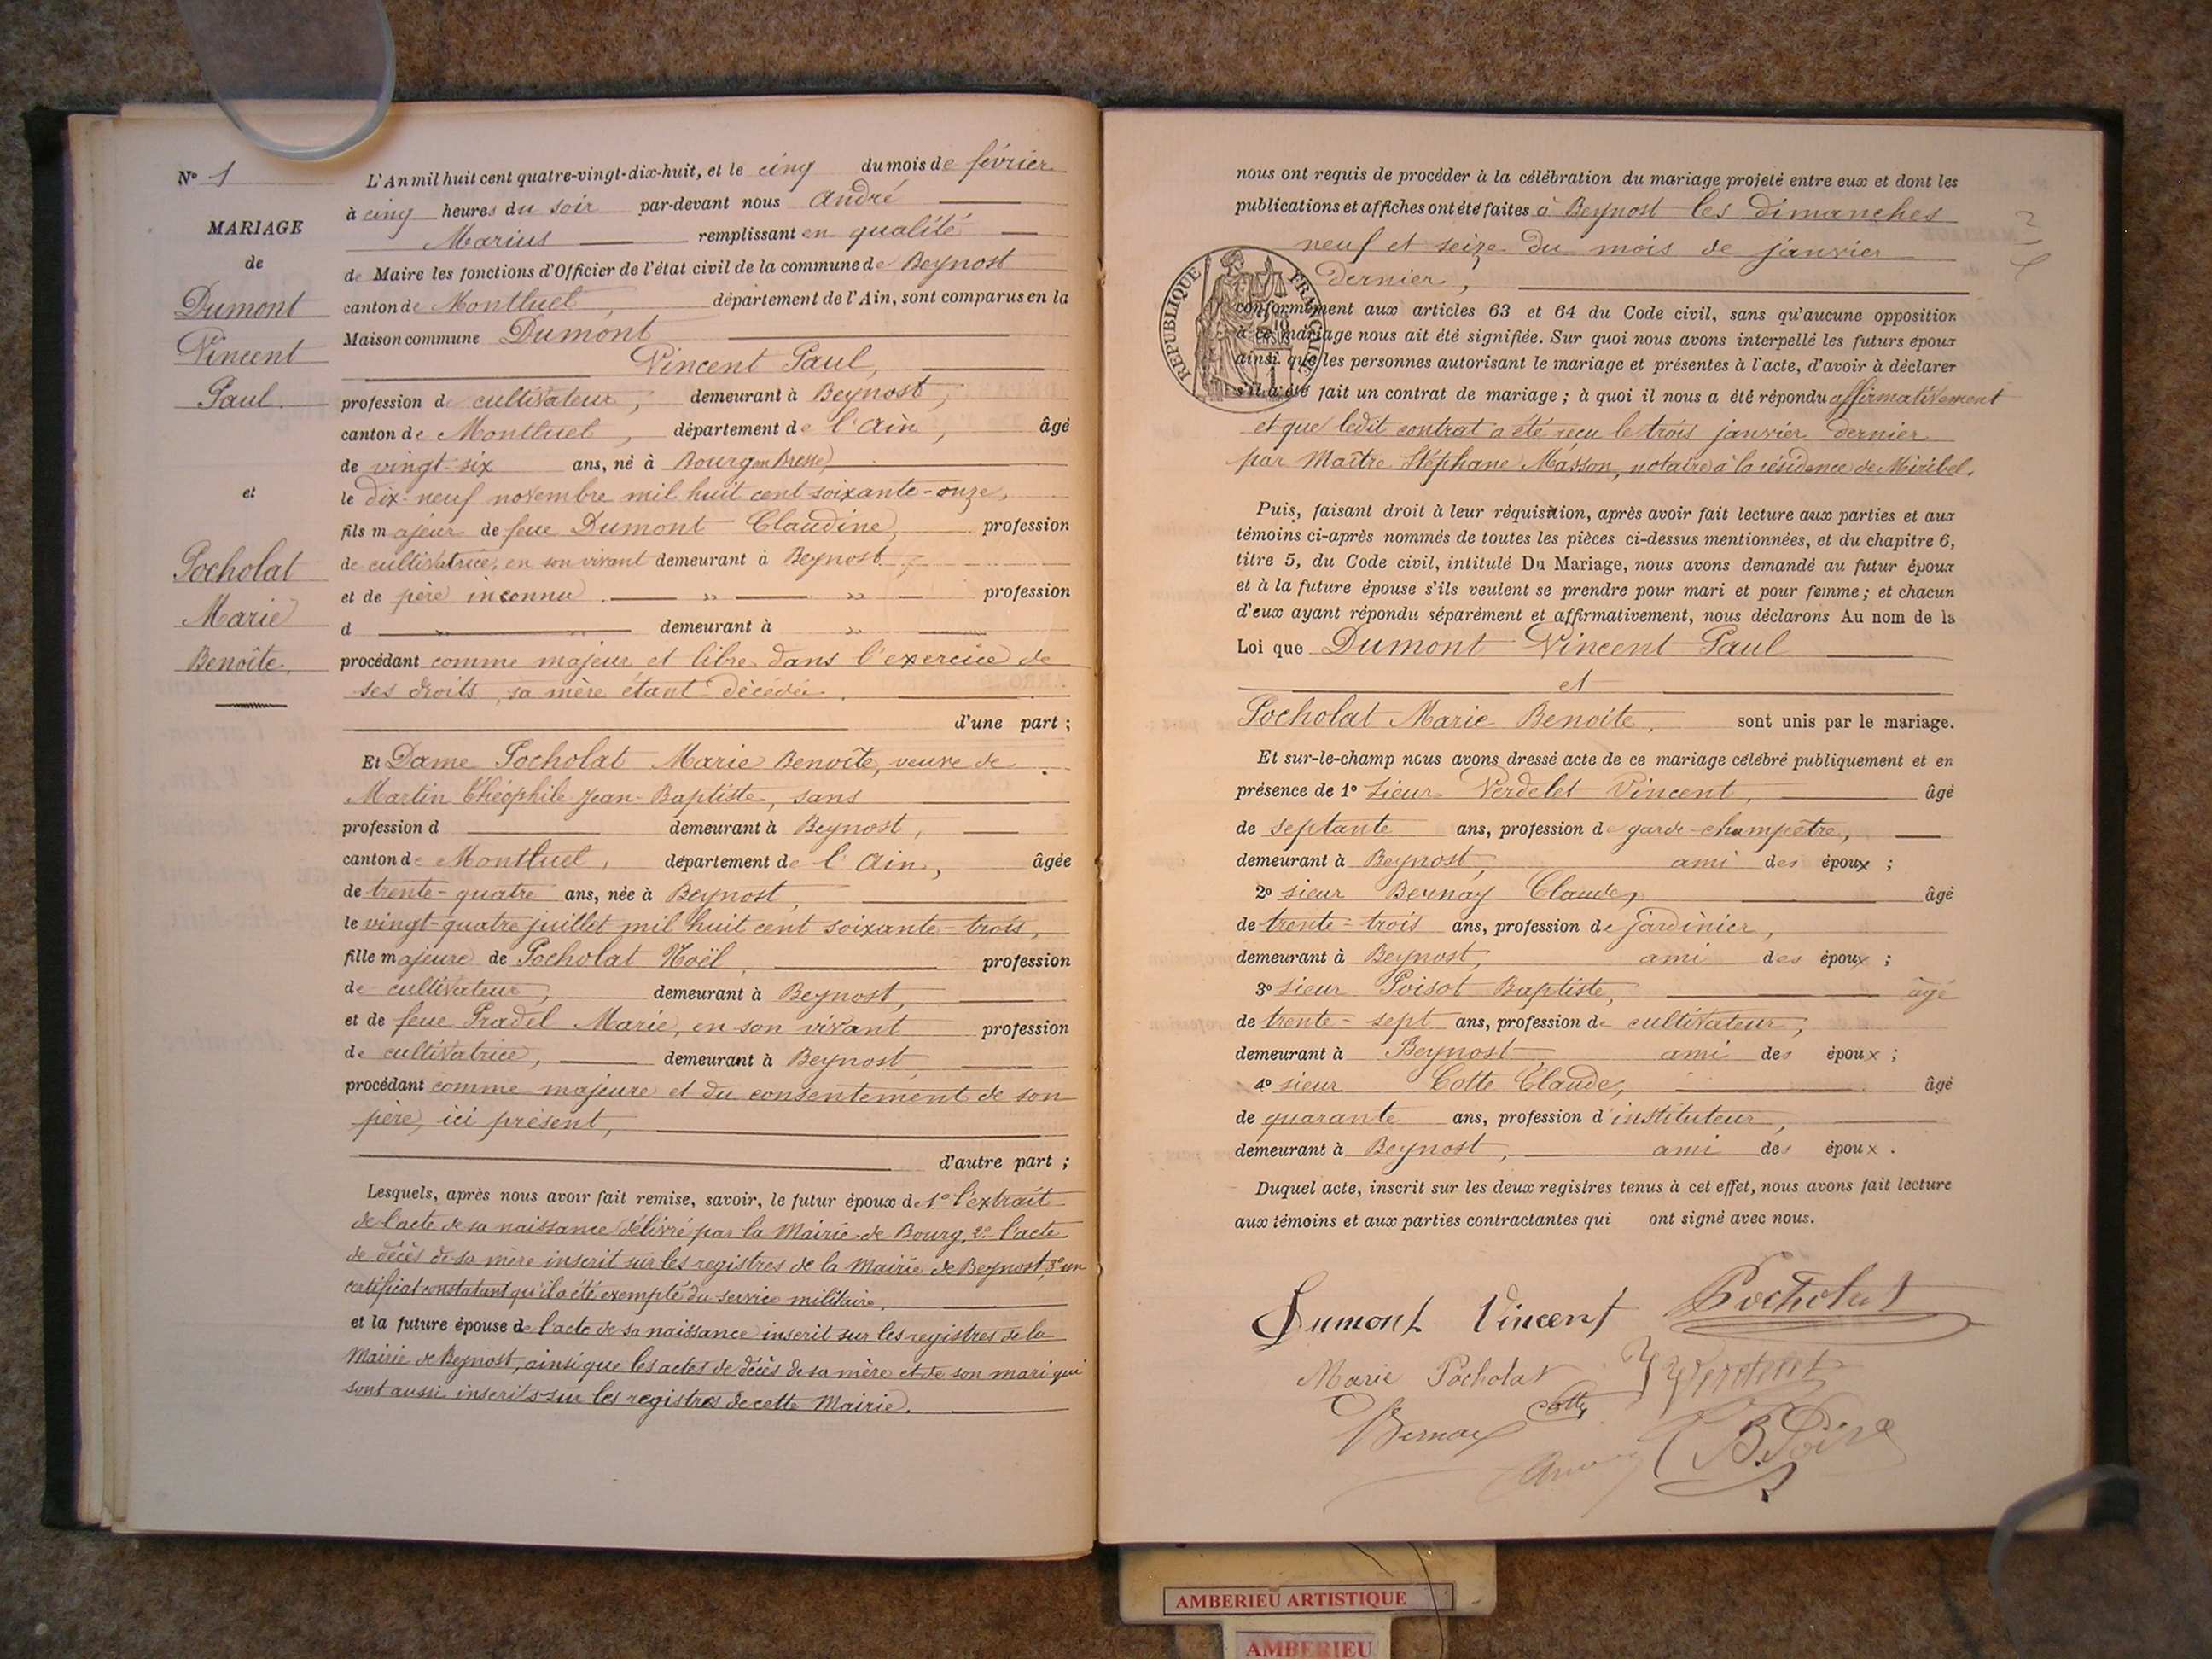 N° 1
MARIAGE
de
Dumont
Vincent
Paul.
et
Pocholat
Marie
Benoîte.
L'An mil huit cent quatre-vingt-dix-huit, et le cinq du mois de février
à cinq heures du soir par-devant nous André
Marius remplissant en qualité
de Maire les fonctions d'Officier de l'état civil de la commune de Beynost
canton de Montluel, département de l'Ain, sont comparus en la
Maison commune Dumont
Vincent Paul,
profession de cultivateur, demeurant à Beynost,
canton de Montluel, département de l'Ain, âgé
de vingt-six ans, né à Bourg en Bresse
le dix-neuf novembre mil huit cent soixante-onze,
fils majeur de feue Dumont Claudine, profession
de cultivatrice, en son vivant demeurant à Beynost,
et de père inconnu. " " profession
d " demeurant à "
procédant comme majeur et libre dans l'exercice de
ses droits, sa mère étant décédée.
d'une part ;
Et Dame Pocholat Marie Benoîte, veuve de
Martin Théophile Jean-Baptiste, sans
profession d demeurant à Beynost,
canton de Montluel, département de l'Ain, âgée
de trente-quatre ans, née à Beynost,
le vingt-quatre juillet mil huit cent soixante-trois,
fille majeure de Pocholat Noël, profession
de cultivateur, demeurant à Beynost,
et de feue Pradel Marie, en son vivant profession
de cultivatrice, demeurant à Beynost,
procédant comme majeure et du consentement de son
père, ici présent,
d'autre part ;
Lesquels, après nous avoir fait remise, savoir, le futur époux de 1° l'extrait
de l'acte de sa naissance délivré par la Mairie de Bourg, 2° l'acte
de décès de sa mère inscrit sur les registres de la Mairie de Beynost, 3° un
certificat constatant qu'il a été exempté du service militaire,
et la future épouse de l'acte de sa naissance inscrit sur les registres de la
Mairie de Beynost, ainsi que les actes de décès de sa mère et de son mari qui
sont aussi inscrits sur les registres de cette Mairie.
nous ont requis de procéder à la célébration du mariage projeté entre eux et dont les
publications et affiches ont été faites à Beynost les dimanches
neuf et seize du mois de janvier
dernier,
RÉPUBLIQUE FRANÇAISE
conformément aux articles 63 et 64 du Code civil, sans qu'aucune opposition
à ce mariage nous ait été signifiée. Sur quoi nous avons interpellé les futurs époux
ainsi que les personnes autorisant le mariage et présentes à l'acte, d'avoir à déclarer
s'il a été fait un contrat de mariage ; à quoi il nous a été répondu affirmativement
et que ledit contrat a été reçu le trois janvier dernier
par Maître Stéphane Masson, notaire à la résidence de Miribel.
Puis, faisant droit à leur réquisition, après avoir fait lecture aux parties et aux
témoins ci-après nommés de toutes les pièces ci-dessus mentionnées, et du chapitre 6,
titre 5, du Code civil, intitulé Du Mariage, nous avons demandé au futur époux
et à la future épouse s'ils veulent se prendre pour mari et pour femme ; et chacun
d'eux ayant répondu séparément et affirmativement, nous déclarons Au nom de la
Loi que Dumont Vincent Paul
et
Pocholat Marie Benoite, sont unis par le mariage.
Et sur-le-champ nous avons dressé acte de ce mariage célébré publiquement et en
présence de 1° Sieur Verdelet Vincent, âgé
de septante ans, profession de garde-champêtre,
demeurant à Beynost, ami des époux ;
2° sieur Bernay Claude, âgé
de trente-trois ans, profession de jardinier,
demeurant à Beynost, ami des époux ;
3° sieur Poisot Baptiste, âgé
de trente-sept ans, profession de cultivateur,
demeurant à Beynost, ami des époux ;
4° sieur Cotte Claude, âgé
de quarante ans, profession d'instituteur,
demeurant à Beynost, ami des époux.
Duquel acte, inscrit sur les deux registres tenus à cet effet, nous avons fait lecture
aux témoins et aux parties contractantes qui ont signé avec nous.
Dumont Vincent Pocholat
Marie Pocholat Verdelet
Bernay Cotte
AMBERIEU ARTISTIQUE
AMBERIEU